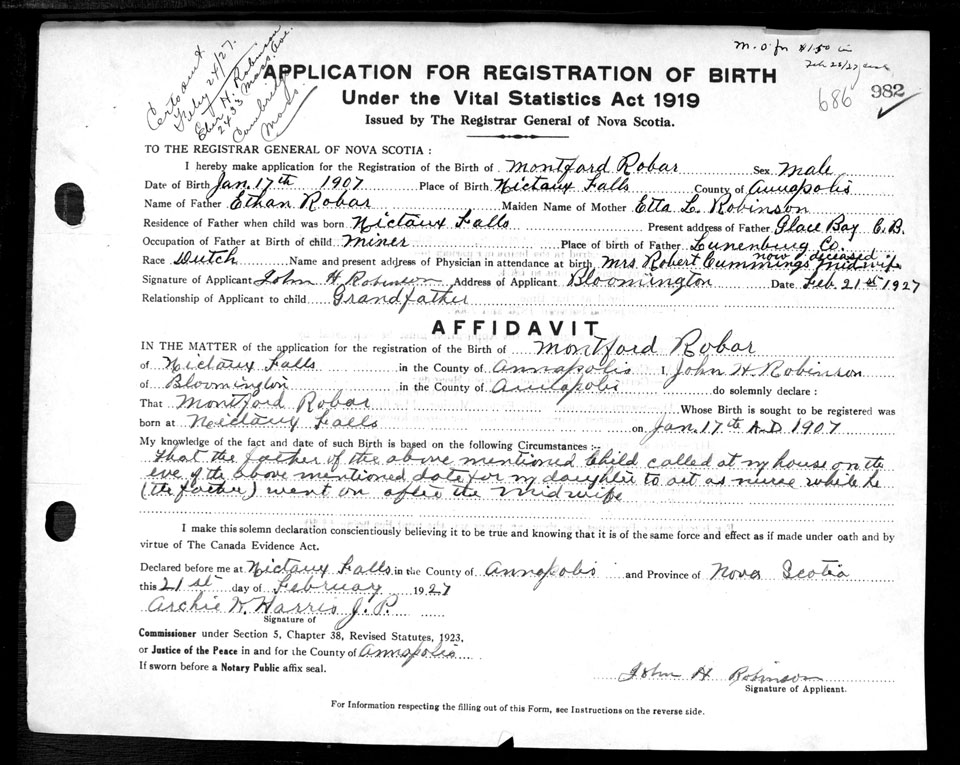 Cert sent
Feby 24/27.
Eber H. Robinson
2433 Mass. Ave.
Cambridge
Mass.
M.O. for $1.50 in
Feb 23/27
686 982
APPLICATION FOR REGISTRATION OF BIRTH
Under the Vital Statistics Act 1919
Issued by The Registrar General of Nova Scotia.
TO THE REGISTRAR GENERAL OF NOVA SCOTIA :
I hereby make application for the Registration of the Birth of Montford Robar Sex Male
Date of Birth Jan. 17th 1907 Place of Birth Nictaux Falls County of Annapolis
Name of Father Ethan Robar Maiden Name of Mother Etta L. Robinson
Residence of Father when child was born Nictaux Falls Present address of Father Glace Bay C.B.
Occupation of Father at Birth of child Miner Place of birth of Father Lunenburg Co.
now deceased
Race Dutch Name and present address of Physician in attendance at birth Mrs. Robert Cummings midwife
Signature of Applicant John H Robinson Address of Applicant Bloomington Date Feb. 21st 1927
Relationship of Applicant to child Grandfather
AFFIDAVIT
IN THE MATTER of the application for the registration of the Birth of Montford Robar
of Nictaux Falls in the County of Annapolis I, John H. Robinson
of Bloomington in the County of Annapolis do solemnly declare :
That Montford Robar Whose Birth is sought to be registered was
born at Nictaux Falls on Jan. 17th A.D 1907
My knowledge of the fact and date of such Birth is based on the following Circumstances :--
That the father of the above mentioned Child called at my house on the
eve of the above mentioned date for my daughter to act as nurse while he
(the father) went on after the Midwife
I make this solemn declaration conscientiously believing it to be true and knowing that it is of the same force and effect as if made under oath and by
virtue of The Canada Evidence Act.
Declared before me at Nictaux Falls in the County of Annapolis and Province of Nova Scotia
this 21st day of February 1927
Archie W. Harris J.P.
Signature of
Commissioner under Section 5, Chapter 38, Revised Statutes, 1923,
or Justice of the Peace in and for the County of Annapolis
If sworn before a Notary Public affix seal.
John H Robinson
Signature of Applicant.
For Information respecting the filling out of this Form, see Instructions on the reverse side.